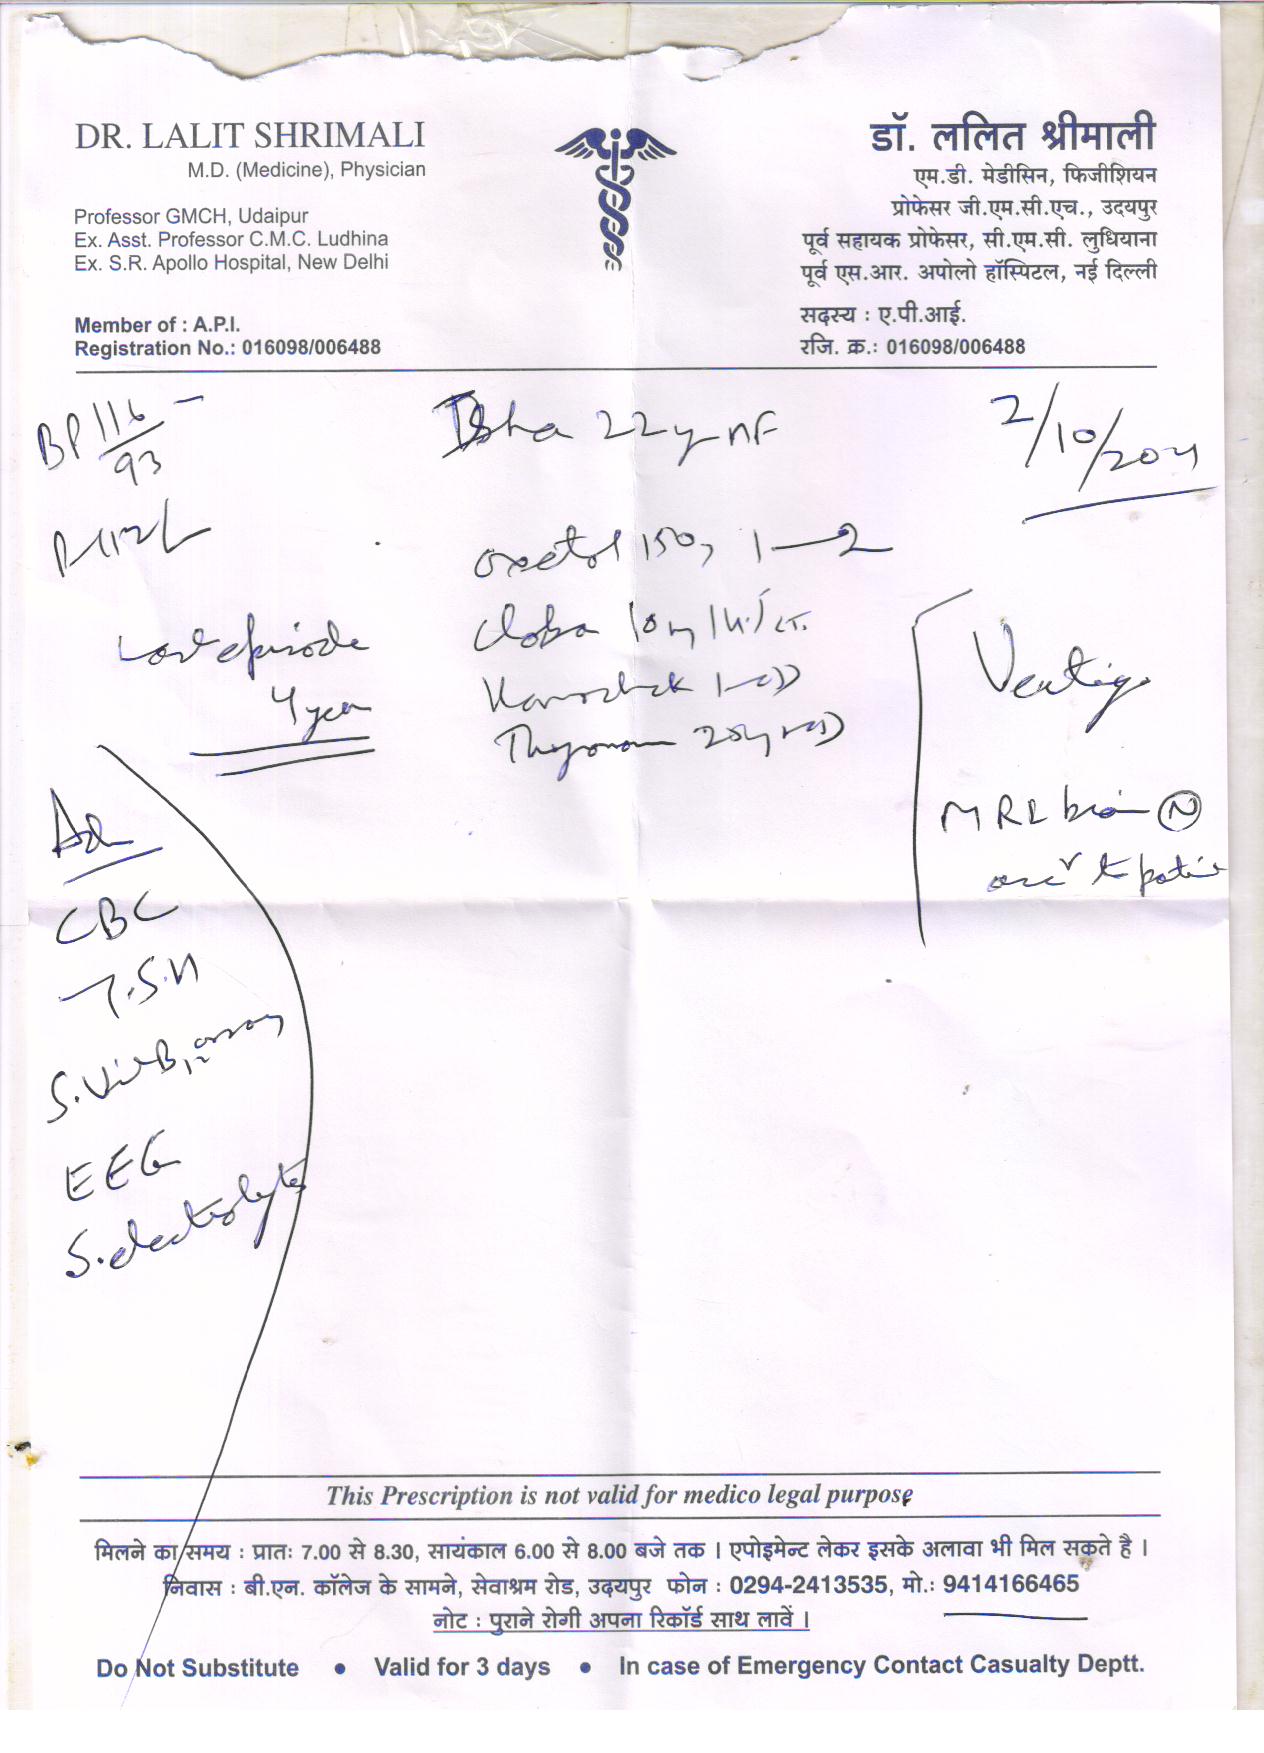 DR. LALIT SHRIMALI
M.D. (Medicine), Physician
Professor GMCH, Udaipur
Ex. Asst. Professor C.M.C. Ludhina
Ex. S.R. Apollo Hospital, New Delhi
Member of : A.P.I.
Registration No.: 016098/006488
डॉ. ललित श्रीमाली
एम.डी. मेडीसिन, फिजीशियन
प्रोफेसर जी.एम.सी.एच., उदयपुर
पूर्व सहायक प्रोफेसर, सी.एम.सी. लुधियाना
पूर्व एस.आर. अपोलो हॉस्पिटल, नई दिल्ली
सदस्य : ए.पी.आई.
रजि. क्र.: 016098/006488
BP 116/93
22
2/10/
Last episode
4 year
oxetol 150 1—2
Cloba 10
Vertigo
MRI brain N
CBC
T.S.H
S. Vit B12
EEG
S. electrolytes
This Prescription is not valid for medico legal purpose
मिलने का समय : प्रातः 7.00 से 8.30, सायंकाल 6.00 से 8.00 बजे तक । एपोइमेन्ट लेकर इसके अलावा भी मिल सकते है ।
निवास : बी.एन. कॉलेज के सामने, सेवाश्रम रोड, उदयपुर फोन : 0294-2413535, मो.: 9414166465
नोट : पुराने रोगी अपना रिकॉर्ड साथ लावें ।
Do Not Substitute • Valid for 3 days • In case of Emergency Contact Casualty Deptt.